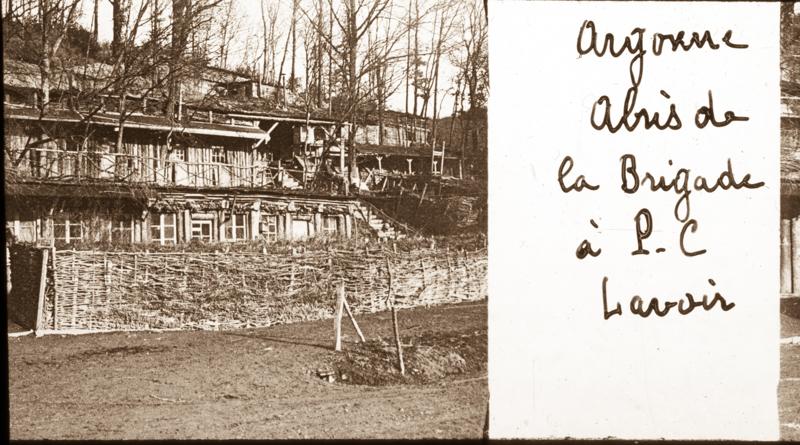 Argonne
Abris de
la Brigade
à P-C
Lavoir